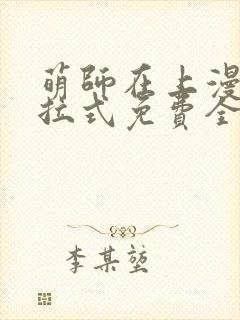 萌师在上漫
拉式免费全
李某堃